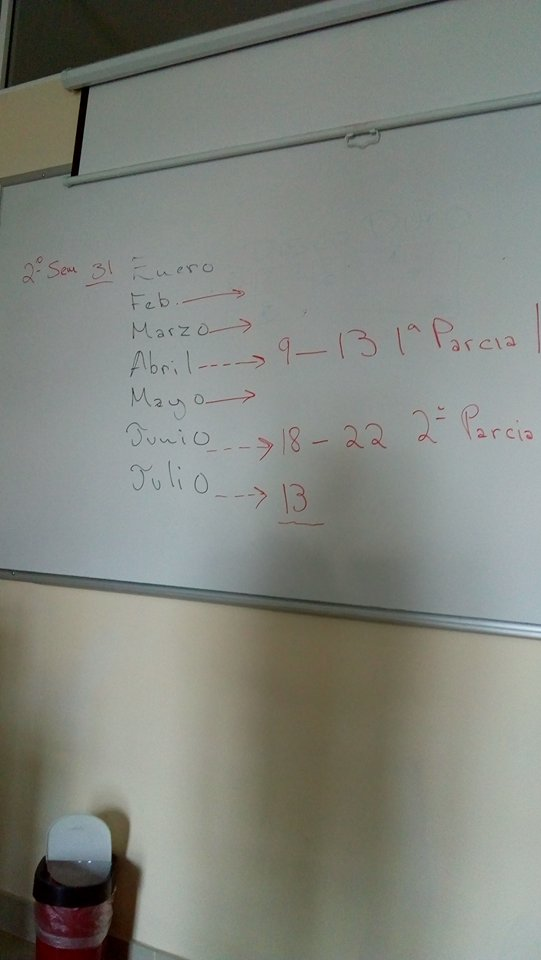 2º Sem 31 Enero
Feb. →
Marzo →
Abril ----> 9 – 13 1ª Parcial
Mayo →
Junio ----> 18 – 22 2º Parcia
Julio ----> 13